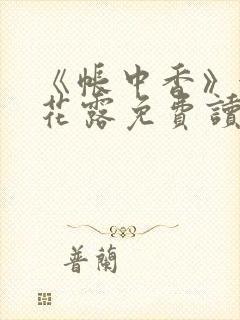 《帳中香》
花露免費讀
普蘭